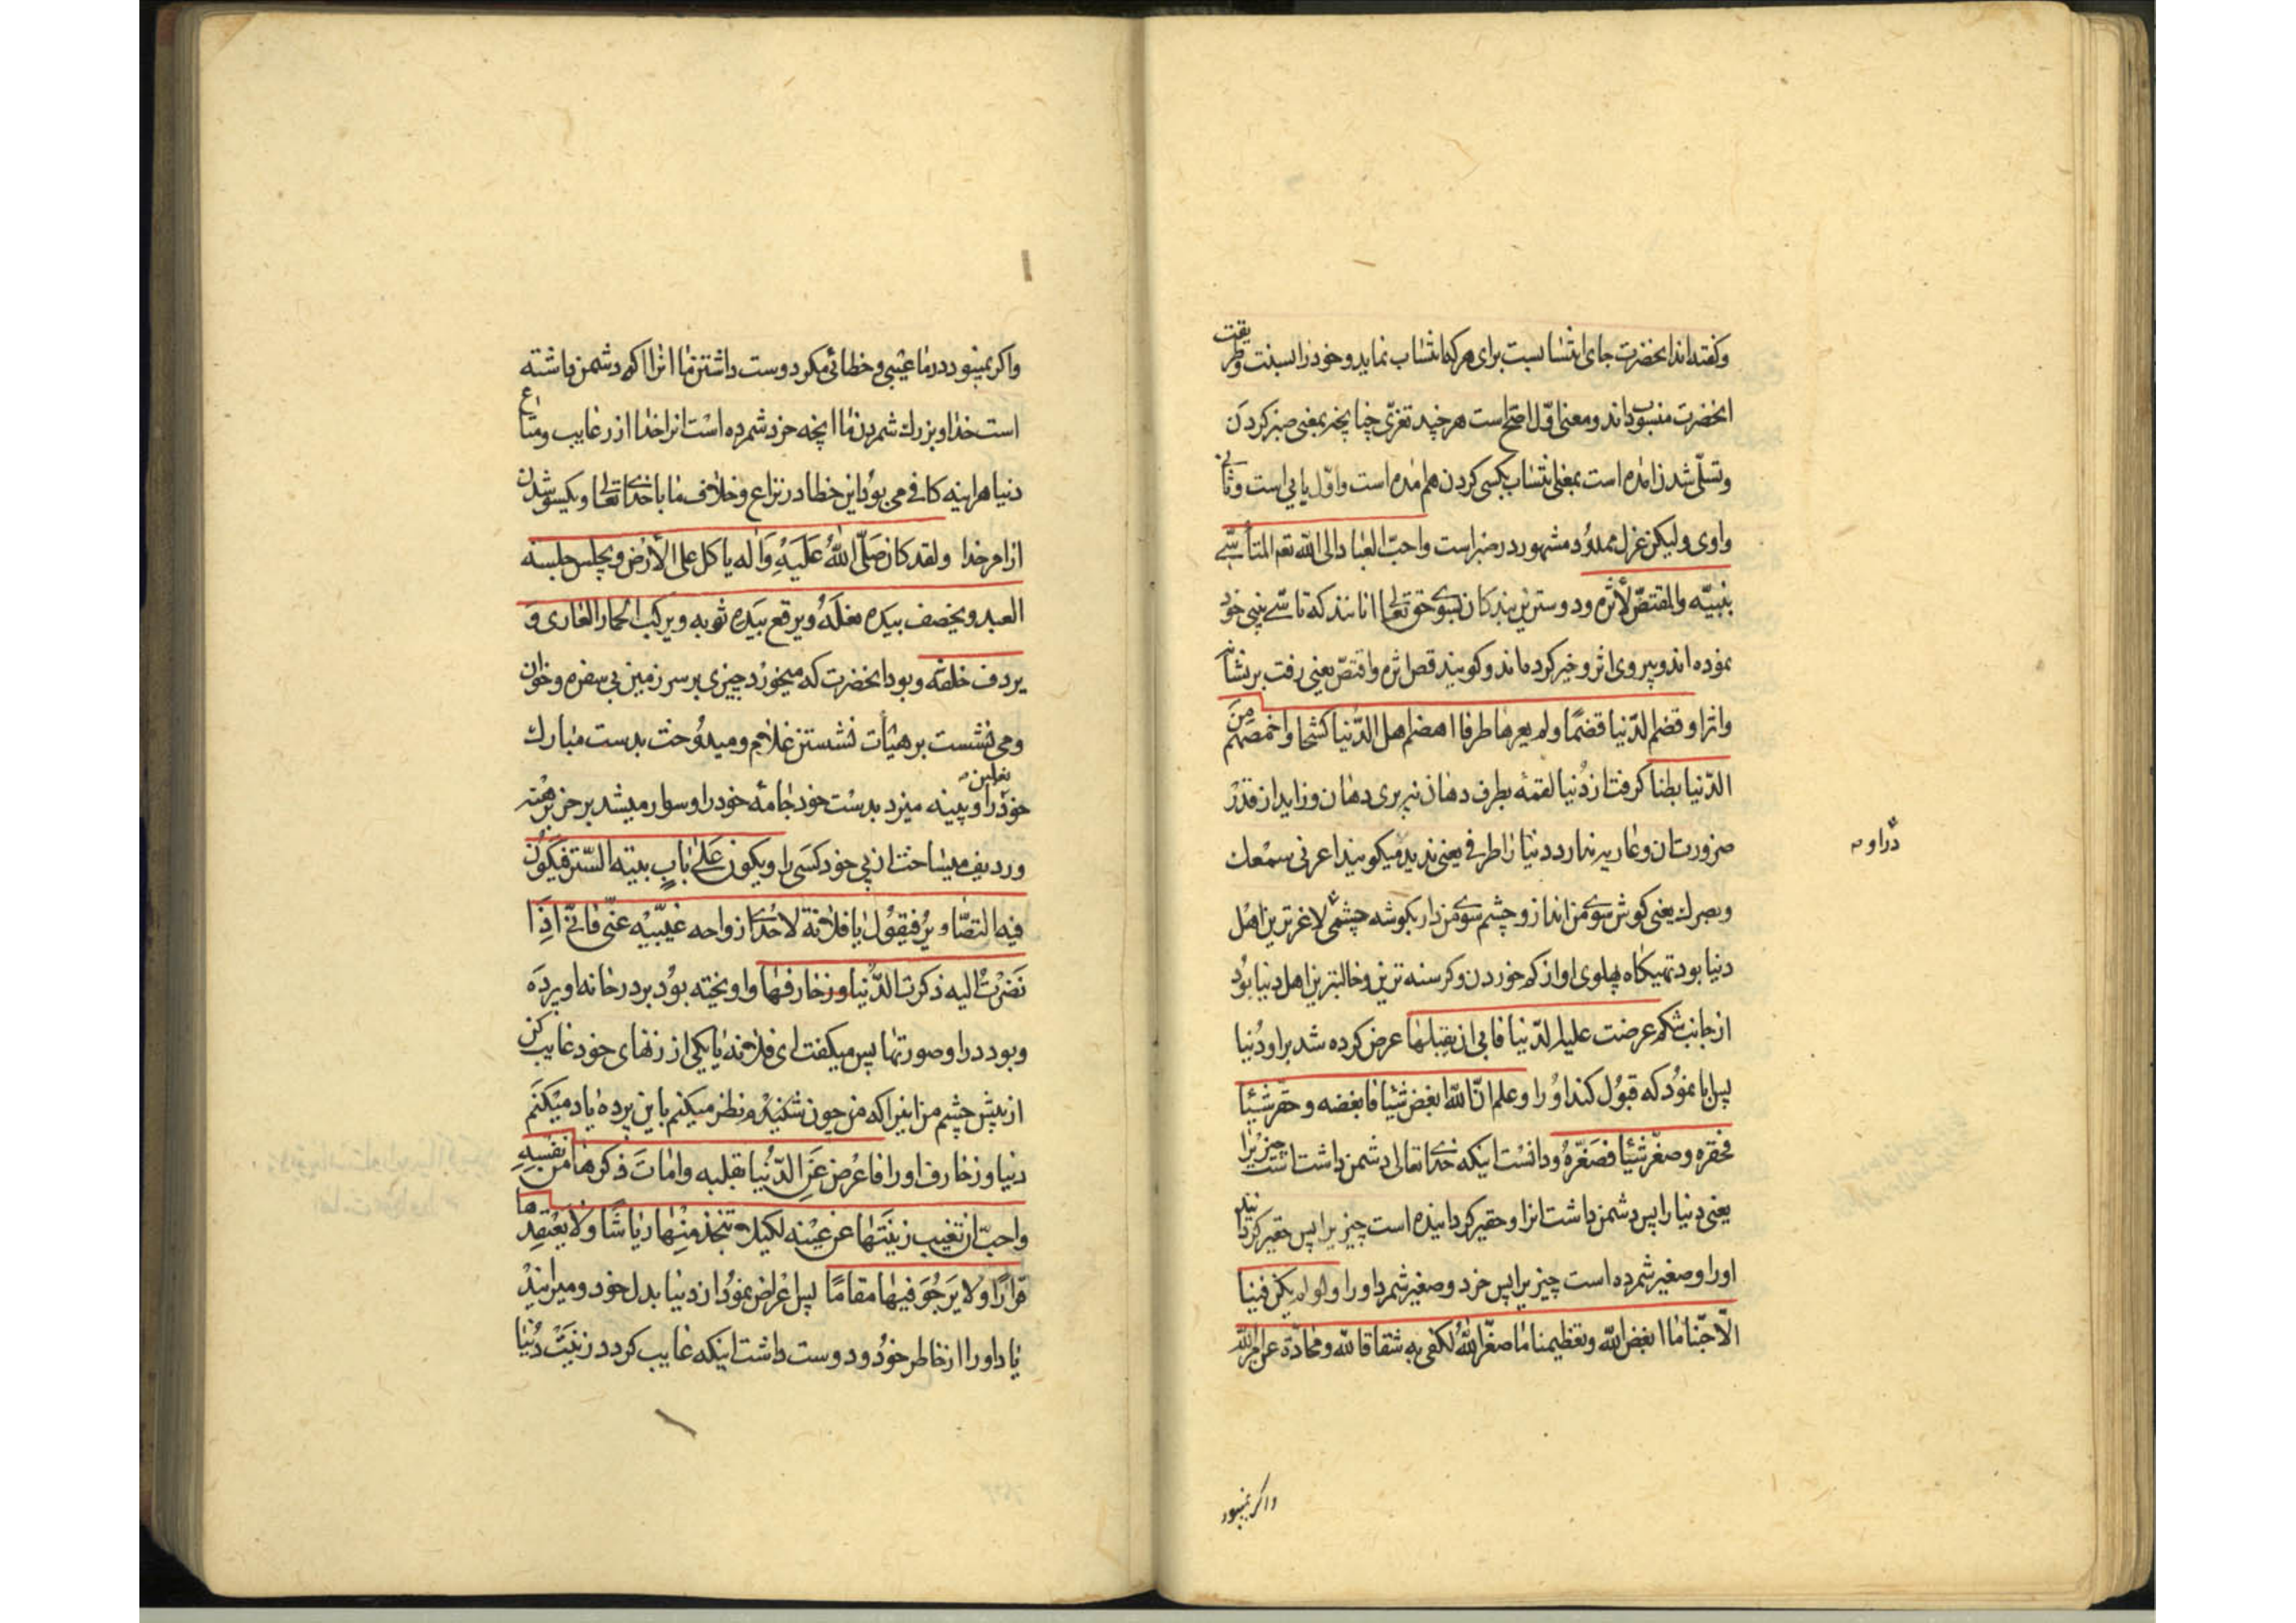 وکفته‌اند انحضرت جای انتسابست برای هر که انتساب نماید و خود را بسنت و طریقت
انحضرت منسوب داند و معنی اوّل اصّح است هر چند تعزّی چنانچه بمعنی صبر کردن
و تسلّی شدن امده است بمعنی انتساب بکسی کردن هم امده است و اوّل یایی است و ثانی
واوی ولیکن عزاء ممدود مشهور در صبر است واحبّ العباد الی اللّه تعم المتأسّی
بنبیّه والمقتصّ لأثره و دوسترین بندکان بسوی حق تعالی انانند که تاسّی بنبی خود
نموده‌اند و پیروی اثر و خیر کرده‌اند و کویند قصّ اثره واقتصّ یعنی رفت بر نشانه
و اثر او قضم الدّنیا قضمًا ولم یعرها طرفا اهضم اهل الدّنیا کشحا واخمصهم من
الدّنیا بطنا کرفت از دُنیا لقمه بطرف دهان نه پری دهان و زاید از قدر
ضرورت ان و عاریه نداد دنیا را طرفی یعنی ندید میکویند اعرنی سمعك
وبصرك یعنی کوش سوی من انداز و چشم سوی من دار بکوشه چشمی لاغرترین اهل
دنیا بود تهیکاه پهلوی او از کم خوردن و کرسنه ترین و خالیترین اهل دنیا بود
دراو
از جانب شکم عرضت علیه الدّنیا فابی ان یقبلها عرض کرده شد بر او دُنیا
پس ابا نمود که قبول کند او را وعلم انّ اللّه ابغض شیئا فابغضه و حقّر شیئا
فحقره و صغّر شیئا فصغّرهُ و دانست اینکه خدای تعالی دشمن داشت است چیزیرا
یعنی دنیا را پس دشمن داشت انرا و حقیر کردانیده است چیزیرا پس حقیر کردانید
اورا و صغیر شمرده است چیزیرا پس خرد و صغیر شمرد اورا ولو لم یکن فینا
الّا حبّنا ما ابغض اللّه وتعظیمنا ما صغّر اللّهُ لکفی به شقاقا للّه ومحادّة عن امر اللّه
واکر نمیبود
واکر نمیبود در ما عیبی و خطائی مکر دوست داشتن ما انرا که دشمن داشته
است خدا و بزرك شمردن ما انچه خرد شمرده است انرا خدا از رغایب و متاع
دنیا هراینه کافی می بود این خطا در نزاع و خلاف ما با خدای تعالی و یکسو شدن
از امر خدا ولقد کان صَلّی اللّهُ عَلَیهِ وَاله یاکل علی الأرض ویجلس جلسة
العبد ویخصف بیده نعله ویرقع بیَده ثوبه ویرکب الحمار العاری و
یردف خلفه و بود انحضرت که میخورد چیزی بر سر زمین بی سفره و خوان
و می نشست بر هیأت نشستن غلام و میدوخت بدست مبارك
نعلین
خود را و پینه میزد بدست خود جامهٔ خود را و سوار میشد بر خر برهنه
و ردیف میساخت از پی خود کسی را ویکون عَلی بابِ بیته السّتر فیَکُون
فیه التصّاویرُ فیقول یا فلانة لاحدی ازواجه غیّبیه عنّی فانّی اذَا
نَضَرتُ الیه ذکرت الدّنیا وزخارفها واویخته بود بر در خانه او پرده
و بود در او صورتها پس میکفت ای فلانه یا یکی از زنهای خود غایب کن
از پیش چشم من اینرا که من چون نظر میکنم باین پرده یاد میکنم
دنیا و زخارف اورا فاعرض عَنِ الدّنیا بقلبه وامات ذکرها من نفسه
واحبّ ان تغیب زینتها عن عینه لکیلا یتخذ منها ریاشًا ولا یعتقدها
قرارًا ولا یَرجُوَ فیها مقامًا پس اعراض نمود از دنیا بدل خود و میرانید
یاد او را از خاطر خود و دوست داشت اینکه غایب کردد زینت دُنیا